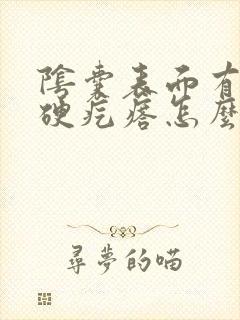 陰囊表面有
硬疙瘩怎麼
尋夢的喵